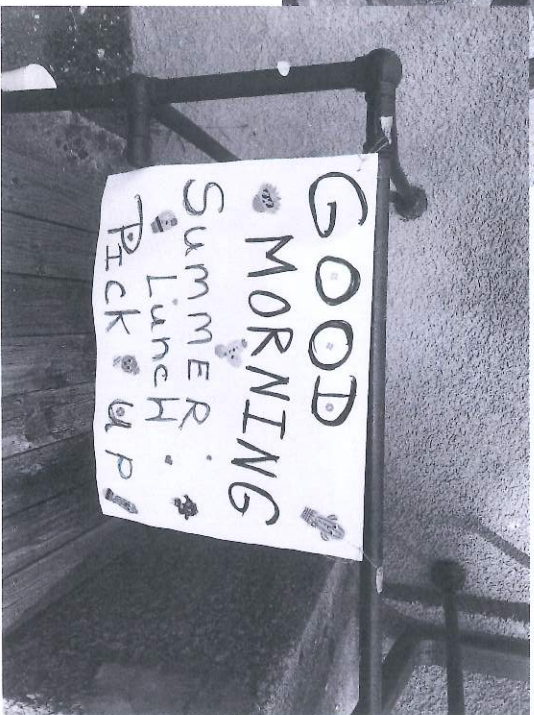 GOOD
MORNING
SummER
LuncH
PIcK uP